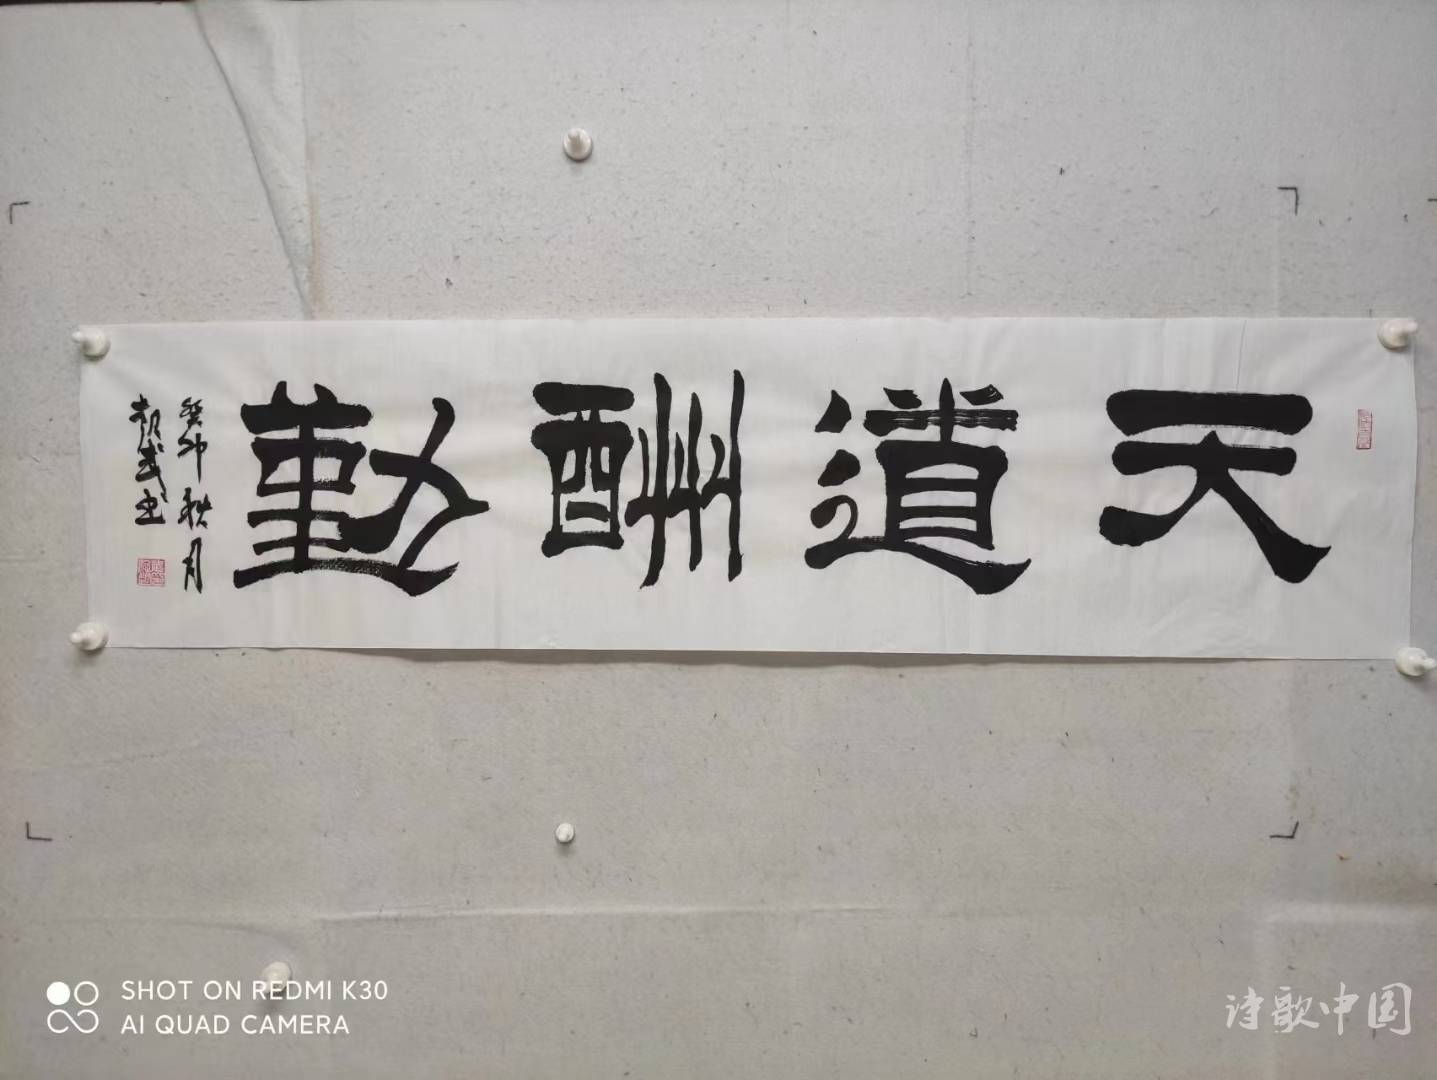 天道酬勤
癸卯秋月
SHOT ON REDMI K30
AI QUAD CAMERA
诗歌中国